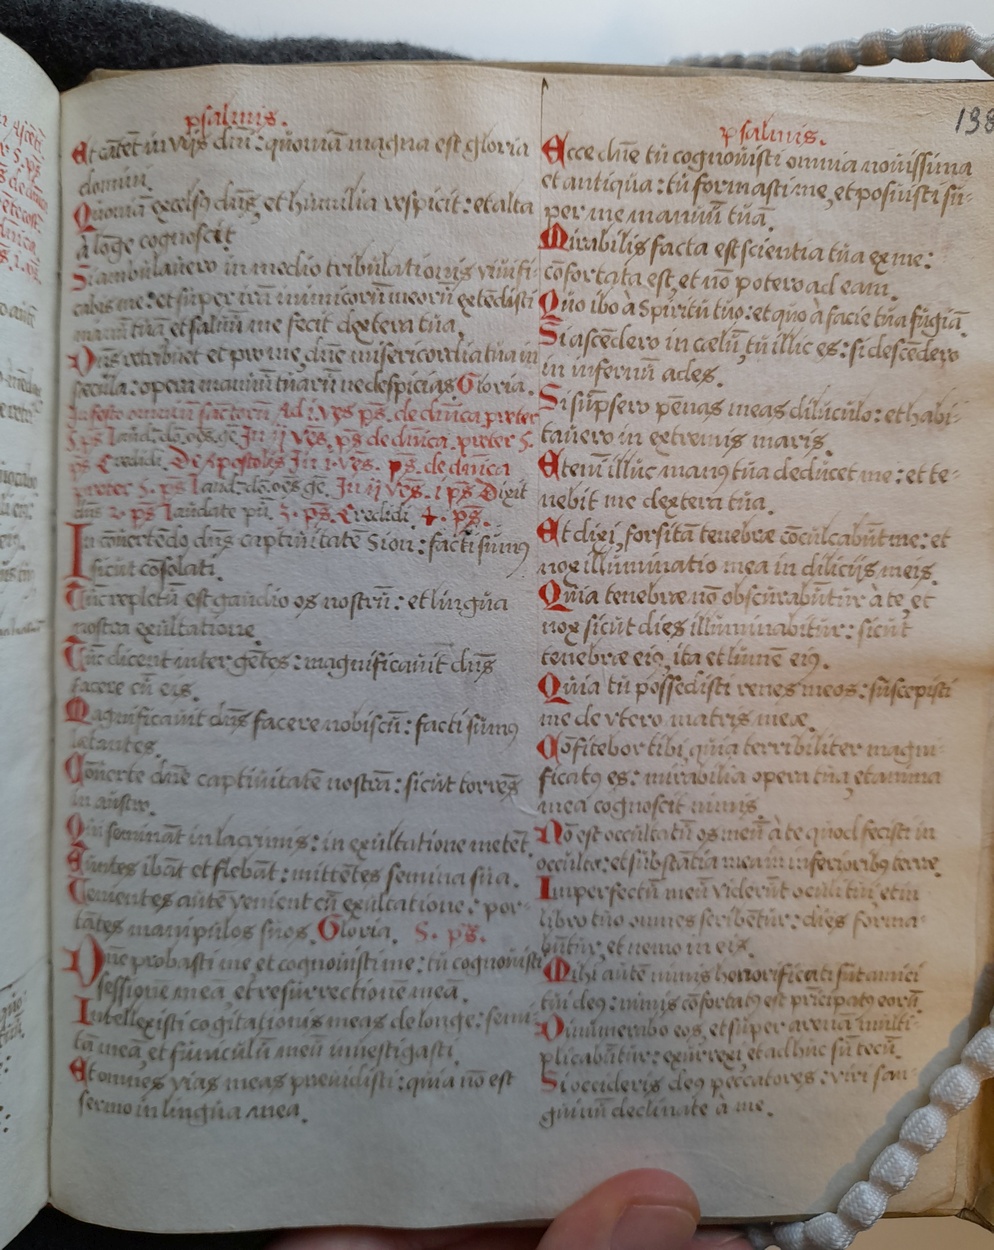 psalmis.
Et cātēt in vijs dn̄i: quoniā magna est gloria
domini.
Quoniā excelsꝰ dn̄s, et humilia respicit: et alta
à lōge cognoscit.
Si ambulavero in medio tribulationis vivifi-
cabis me: et super irā inimicorū meorū extēdisti
manū tuā, et salvū me fecit dextera tua.
Dn̄s retribuet et pro me, dn̄e misericordia tua in
secula: opera manuū tuarū ne despicias Gloria.
In festo omniū sāctorū Ad i. ves ps̄. de dn̄ica preter
5. ps̄ laud. do. oēs. gē In ij vēs. ps̄ de dn̄ica. preter 5.
ps̄ Credidi. De Apostolis In 1. vēs. ps̄. de dn̄ica
preter 5. ps̄ laud. do. oēs ge. In ij vēs. i ps̄ Dixit
dn̄s 2. ps̄ laudate pū. 3. ps̄. Credidi. 4. ps̄.
In cōvertēdo dn̄s captivitatē Sion: facti sumꝰ
sicut cōsolati.
Tūc repletū est gaudio os nostrū: et lingua
nostra exultatione.
Tūc dicent inter gētes: magnificavit dn̄s
facere cū eis.
Magnificavit dn̄s facere nobiscū: facti sumꝰ
letantes.
Cōverte dn̄e captivitatē nostrā: sicut torrēs
in austro.
Qui semināt in lacrimis: in exultatione metēt.
Euntes ibāt et flebāt: mittētes semina sua.
Venientes autē venient cū exultatione: por-
tātes manipulos suos. Gloria. 5. ps̄.
Dn̄e probasti me et cognovisti me: tu cognovisti
sessionē meā, et resurrectionē meā.
Intellexisti cogitationis meas de longe: semi-
tā meā, et funiculū meū investigasti.
Et omnes vias meas previdisti: quia nō est
sermo in lingua mea.
138
psalmis.
Ecce dn̄e tu cognovisti omnia novissima
et antiqua: tu formasti me, et posuisti su-
per me manuū tuā.
Mirabilis facta est scientia tua ex me:
cōfortata est, et nō potero ad eam.
Quo ibo à Spiritu tuo: et quo à facie tua fugiā.
Si ascēdero in cælū, tu illic es: si descēdero
in infernū ades.
Si sūpsero pēnas meas diluculo: et habi-
tavero in extremis maris.
Etenī illuc manꝰ tua deducet me: et te-
nebit me dextera tua.
Et dixi, forsitā tenebræ cōculcabūt me: et
nox illuminatio mea in dilicijs meis.
Quia tenebræ nō obscurabūtur à te, et
nox sicut dies illuminabitur: sicut
tenebræ eiꝰ, ita et lumē eiꝰ.
Quia tu possedisti renes meos: suscepisti
me de vtero matris meæ.
Cōfitebor tibi quia terribiliter magni-
ficatꝰ es: mirabilia opera tua, et anima
mea cognoscit nimis.
Nō est occultatū os meū à te quod fecisti in
occulto: et substātia mea in inferioribꝰ terre.
Imperfectū meū viderūt oculi tui, et in
libro tuo omnes scribētur: dies forma-
būtur, et nemo in eis.
Mihi autē nimis honorificati sūt amici
tui deꝰ: nimis cōfortatꝰ est prīcipatꝰ eorū.
Dinumerabo eos, et super arenā multi-
plicabūtur: exurrexi, et adhuc sū tecū.
Si occideris deꝰ peccatores: viri san-
guinū declinate à me.